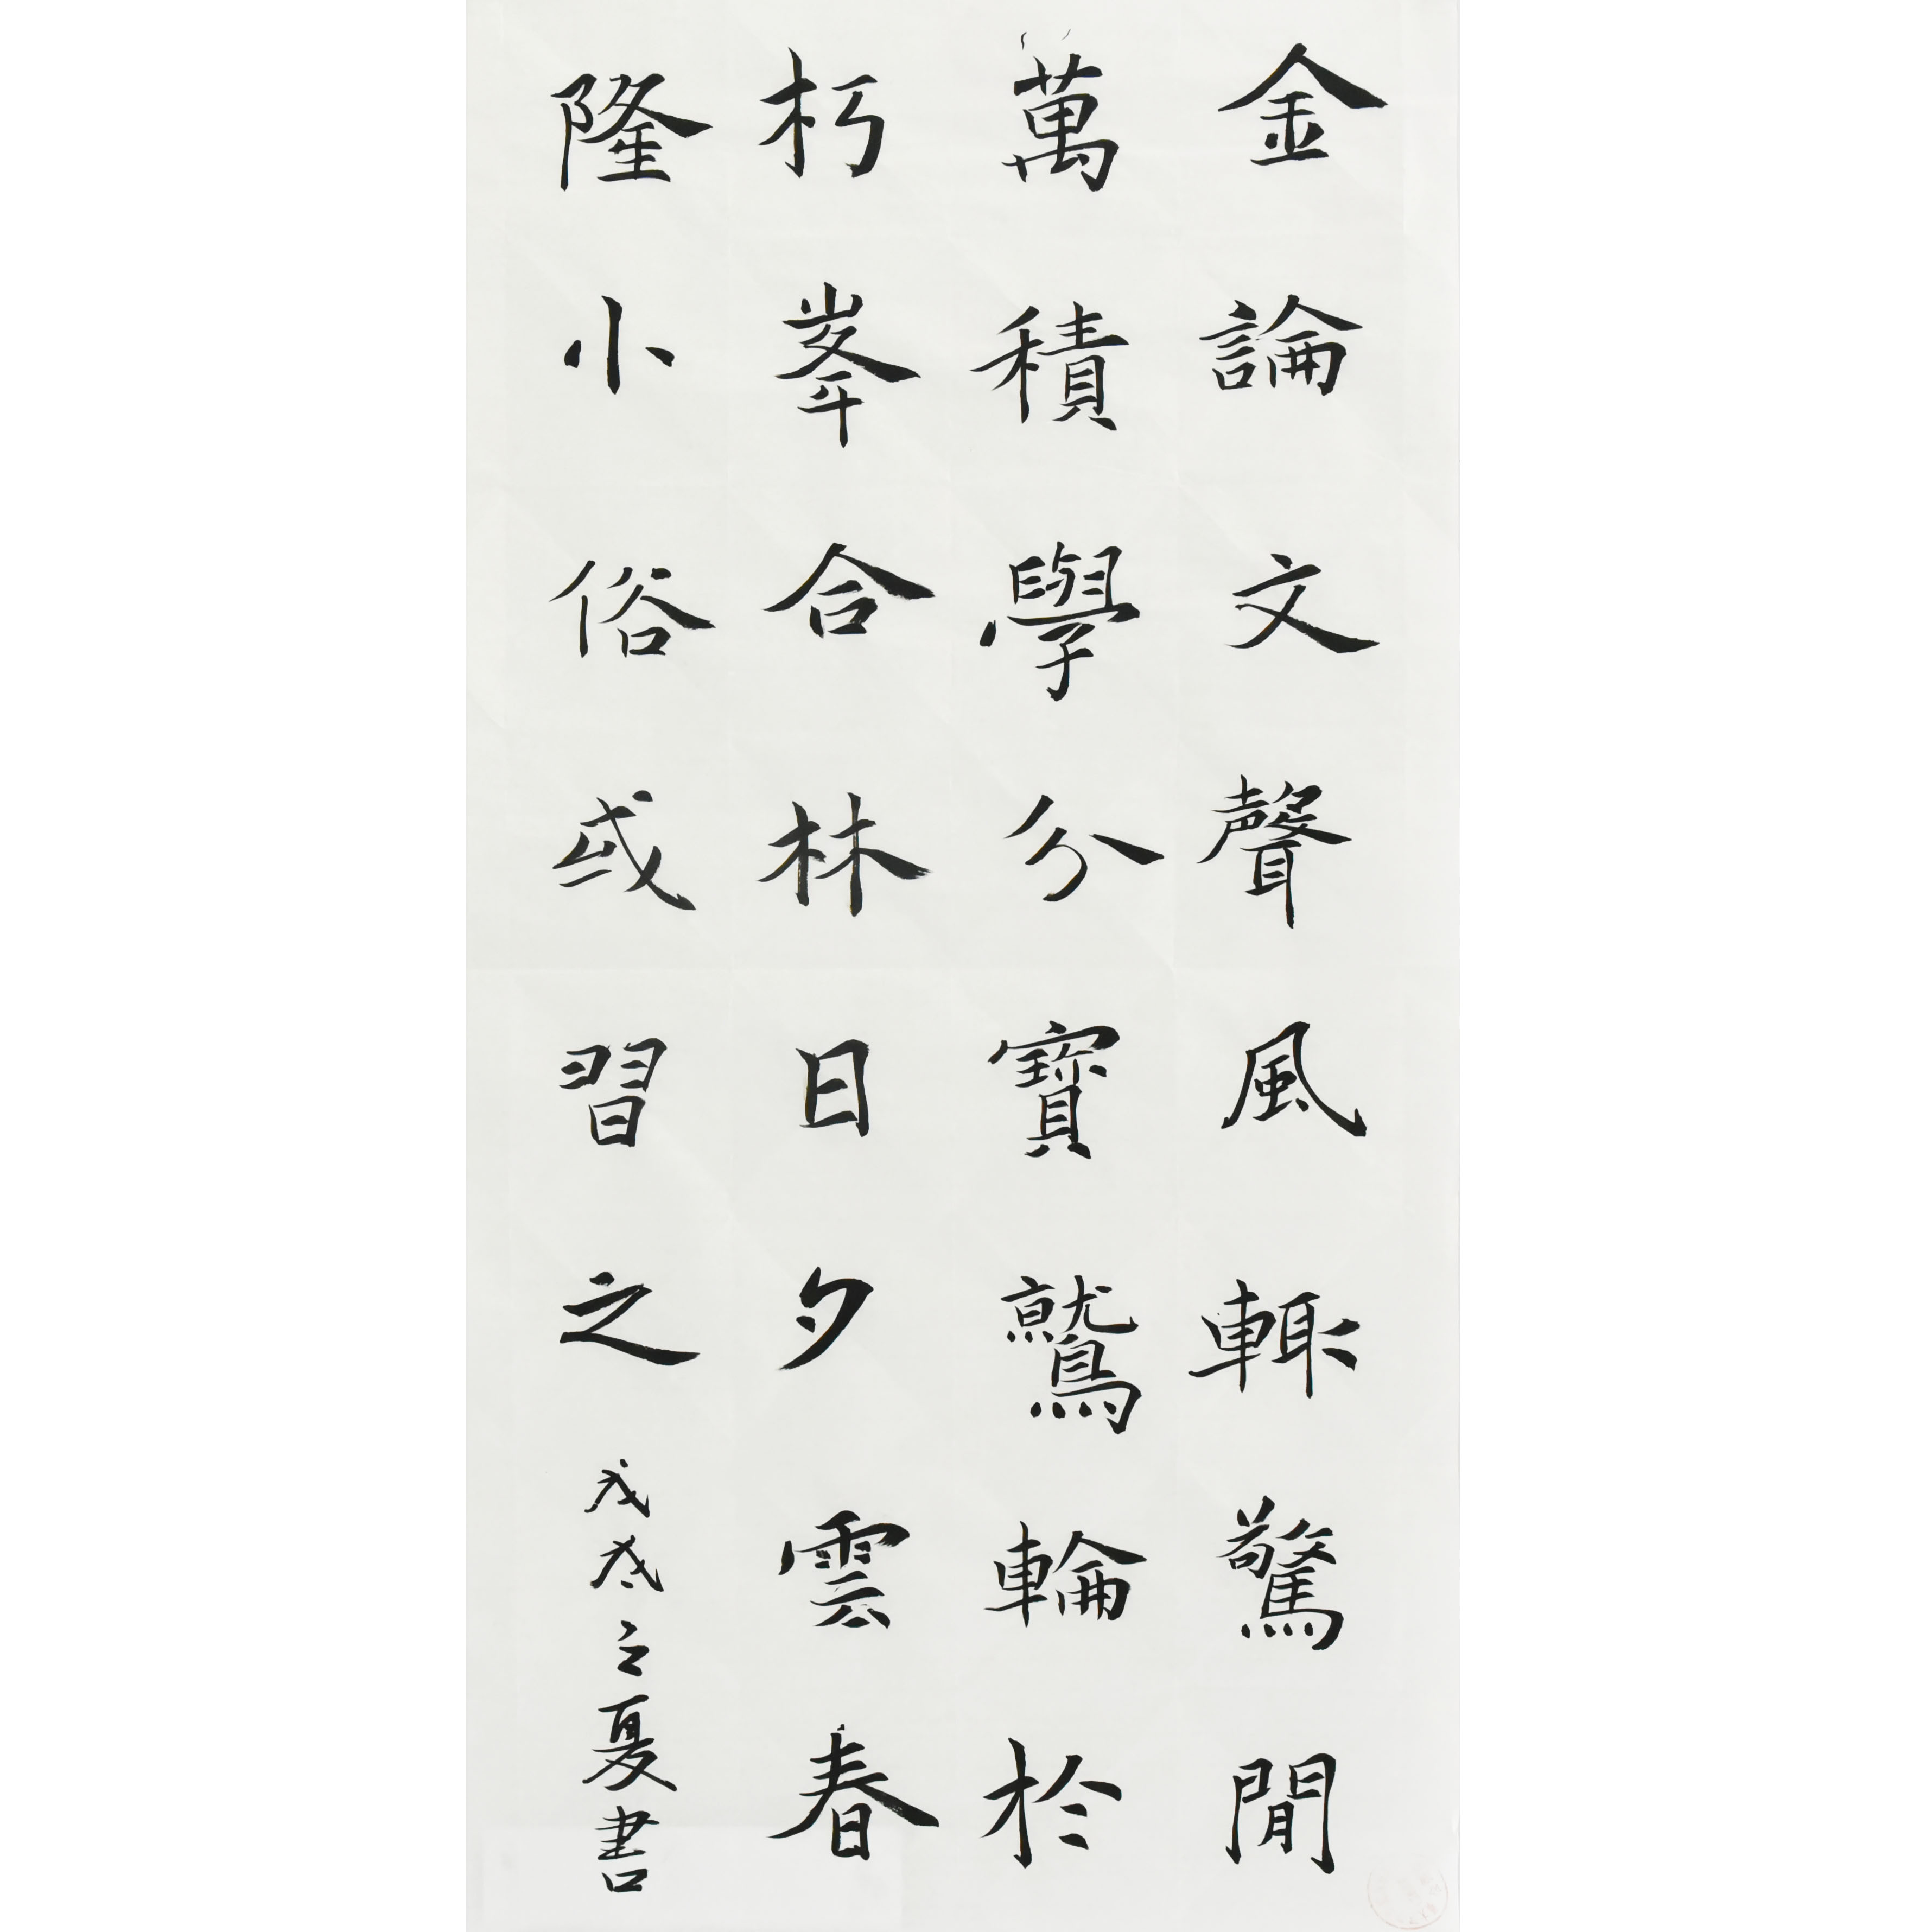 金論文聲風輙驚閒
萬積學分寶鷲輪於
朽峯合林日夕雲春
隆小俗或習之戊戌之夏書